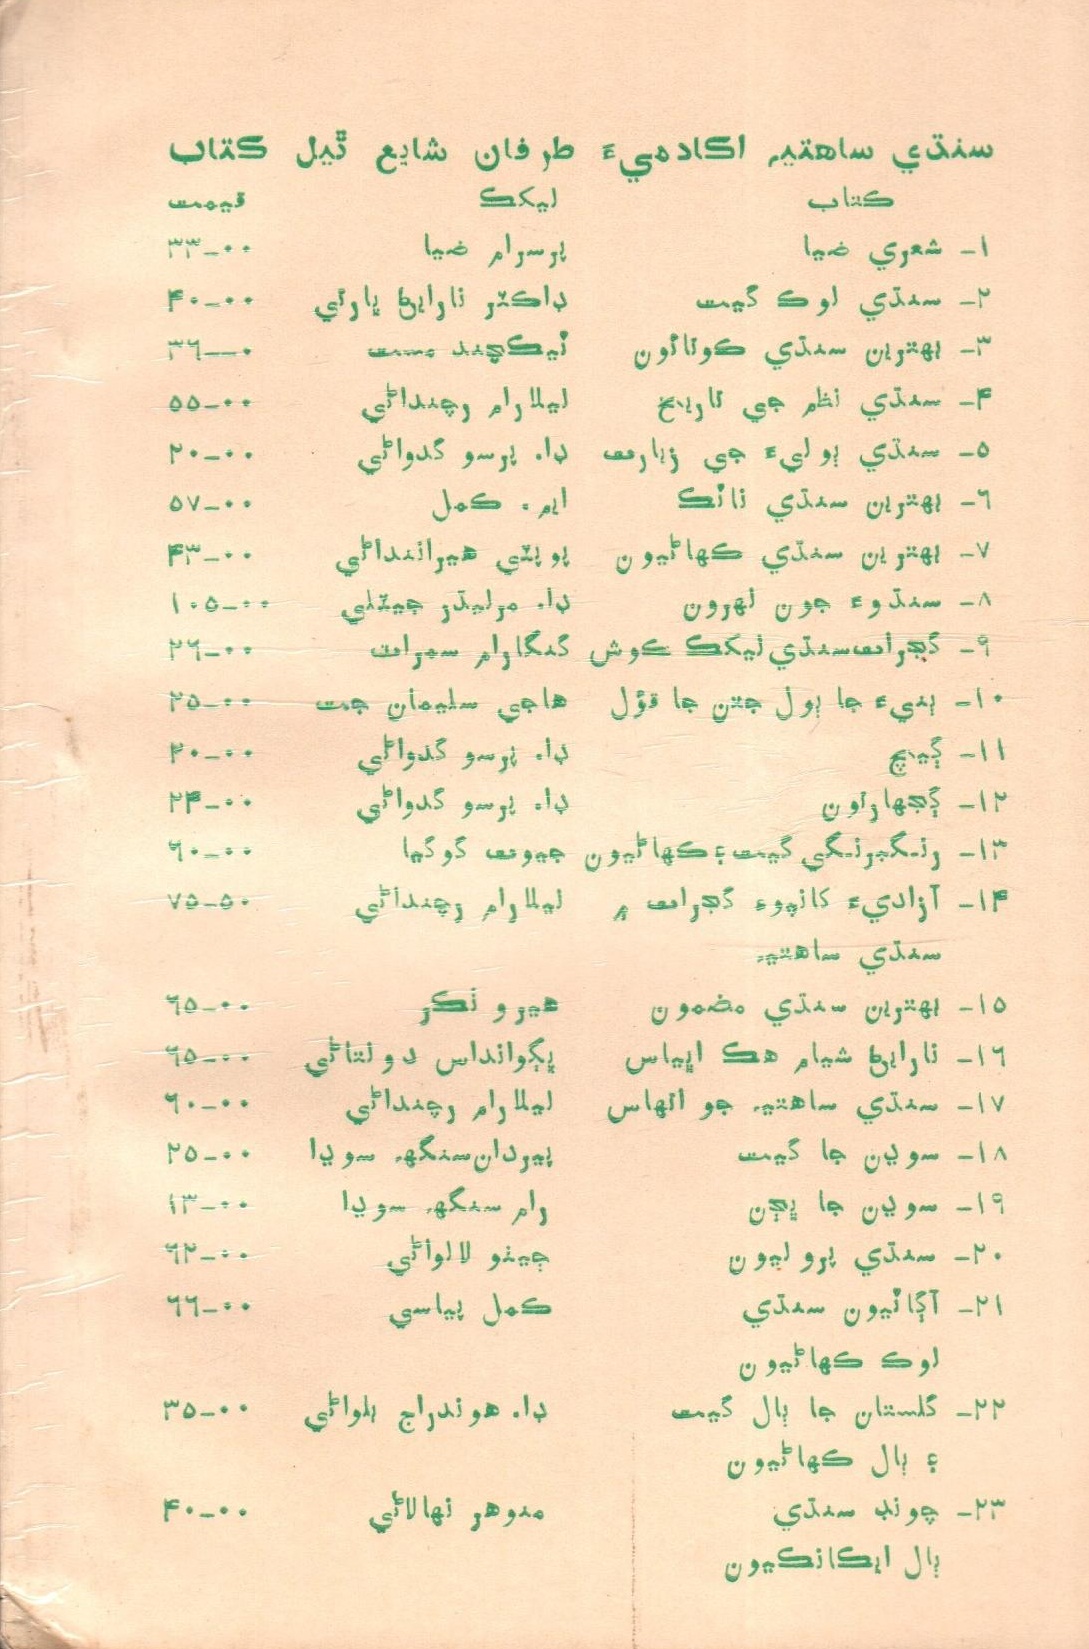 سنڌي ساهتيه اڪادميءَ طرفان شايع ٿيل ڪتاب
ڪتاب ليکڪ قيمت
١- شعري ضيا پرسرام ضيا ٣٣-٠٠
٢- سنڌي لوڪ گيت ڊاڪٽر نارايڻ ڀارتي ۴٠-٠٠
٣- بهترين سنڌي ڪوتائون ٽيڪچند مست ٣٦-٠
۴- سنڌي نظم جي تاريخ ليلارام رچنداڻي ٥٥-٠٠
٥- سنڌي ٻوليءَ جي زيارت ڊا. پرسو گدواڻي ٢٠-٠٠
٦- بهترين سنڌي ناٽڪ ايم. ڪمل ٥٧-٠٠
٧- بهترين سنڌي ڪهاڻيون پوپٽي هيراننداڻي ۴٣-٠٠
٨- سنڌوءَ جون لهرون ڊا. مرليڌر جيٽلي ١٠٥-٠٠
٩- گجرات سنڌي ليکڪ ڪوش گنگارام سمراٽ ٢٦-٠٠
١٠- ٻنيءَ جا ٻول جتن جا قؤل حاجي سليمان جت ٢٥-٠٠
١١- ڳيچ ڊا. پرسو گدواڻي ۴٠-٠٠
١٢- ڳجهارتون ڊا. پرسو گدواڻي ٢۴-٠٠
١٣- رنگبرنگي گيت ۽ ڪهاڻيون جيوت گوگيا ٦٠-٠٠
١۴- آزاديءَ کانپوءِ گجرات ۾ ليلارام رچنداڻي ٧٥-٥٠
سنڌي ساهتيه
١٥- بهترين سنڌي مضمون هيرو ٺڪر ٦٥-٠٠
١٦- نارايڻ شيام هڪ اڀياس ڀڳوانداس دولتاڻي ٦٥-٠٠
١٧- سنڌي ساهتيه جو اتهاس ليلارام رچنداڻي ٦٠-٠٠
١٨- سوڍن جا گيت پيردان سنگهه سوڍا ٢٥-٠٠
١٩- سوڍن جا ڀڄن رام سنگهه سوڍا ١٣-٠٠
٢٠- سنڌي پروليون جيٺو لالواڻي ٦٢-٠٠
٢١- آڳاٽيون سنڌي ڪمل پياسي ٦٦-٠٠
لوڪ ڪهاڻيون
٢٢- گلستان جا ٻال گيت ڊا. هوندراج بلواڻي ٣٥-٠٠
۽ ٻال ڪهاڻيون
٢٣- چونڊ سنڌي منوهر نهالاڻي ۴٠-٠٠
ٻال ايڪانڪيون